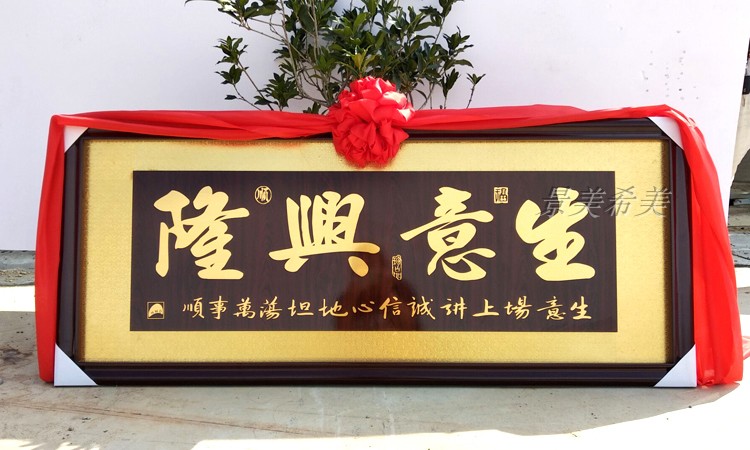 生意興隆
生意場上講誠信心地坦蕩萬事順
順
福
景美希美